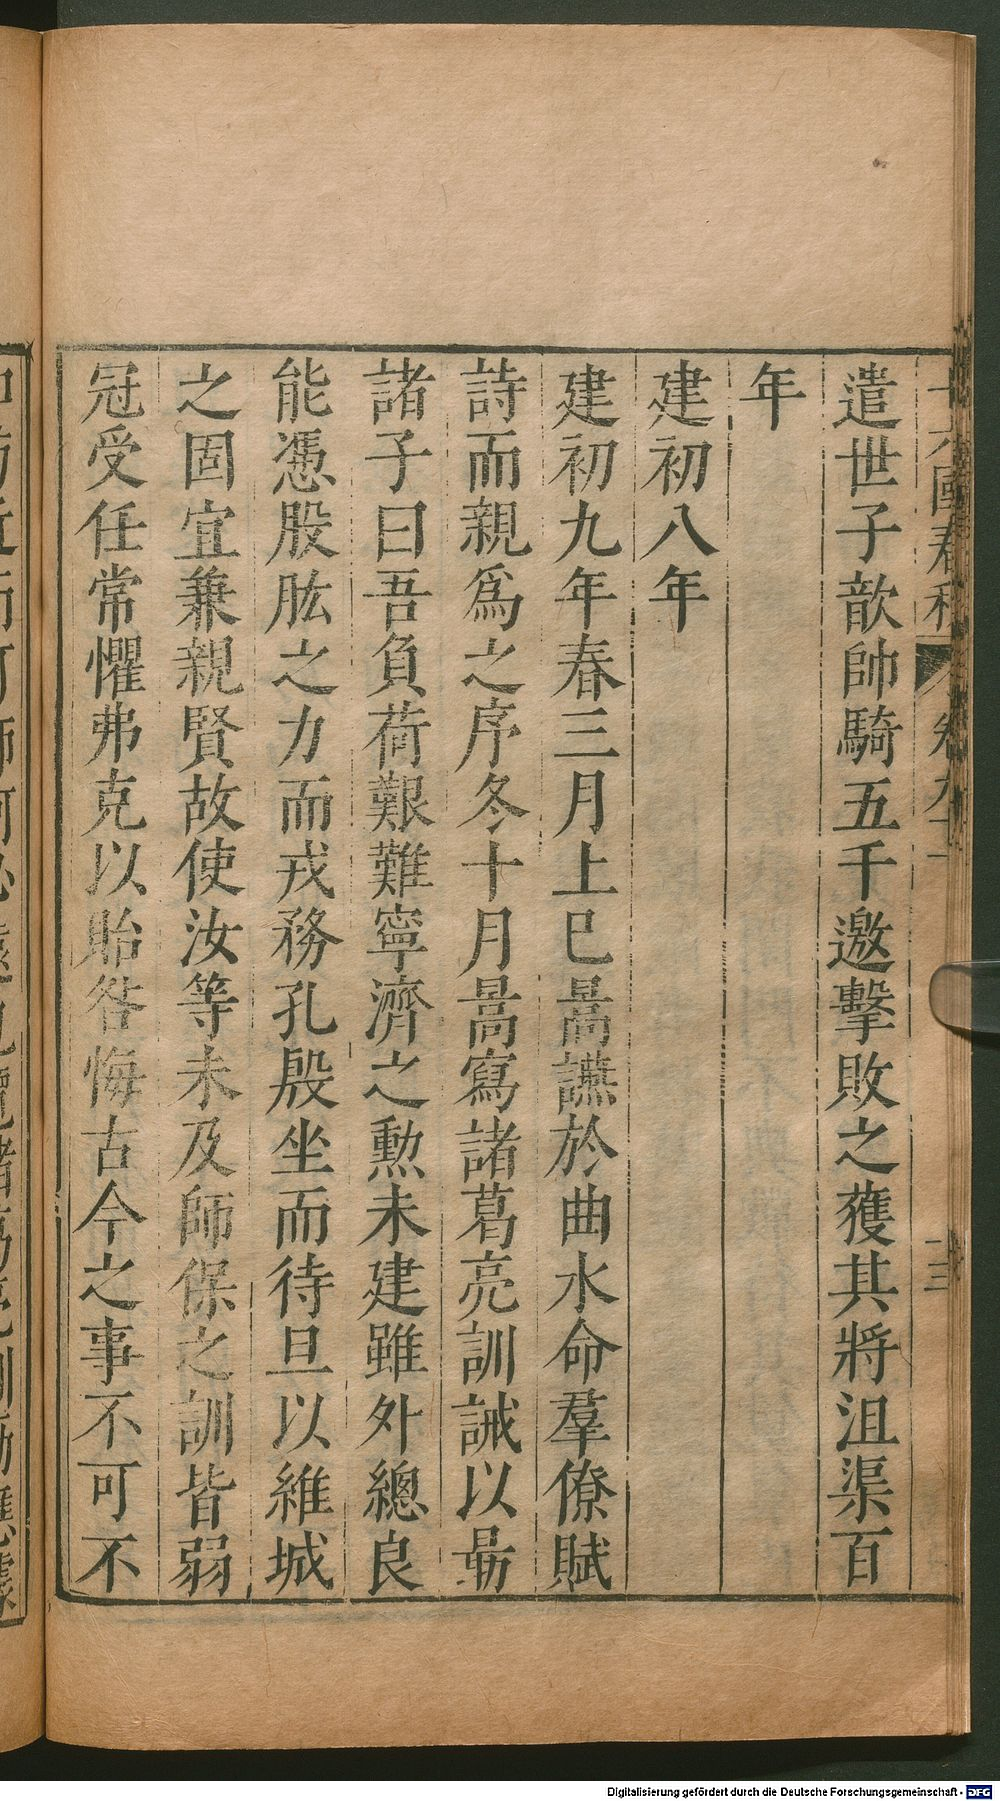 十六國春秋 卷九十一
遣世子歆帥騎五千邀擊敗之獲其將沮渠百
年
建初八年
建初九年春三月上巳暠讌於曲水命羣僚賦
詩而親爲之序冬十月暠寫諸葛亮訓誡以勗
諸子曰吾負荷艱難寧濟之勲未建雖外總良
能憑股肱之力而戎務孔殷坐而待旦以維城
之固宜兼親賢故使汝等未及師保之訓皆弱
冠受任常懼弗克以貽咎悔古今之事不可不
Digitalisierung gefördert durch die Deutsche Forschungsgemeinschaft - DFG